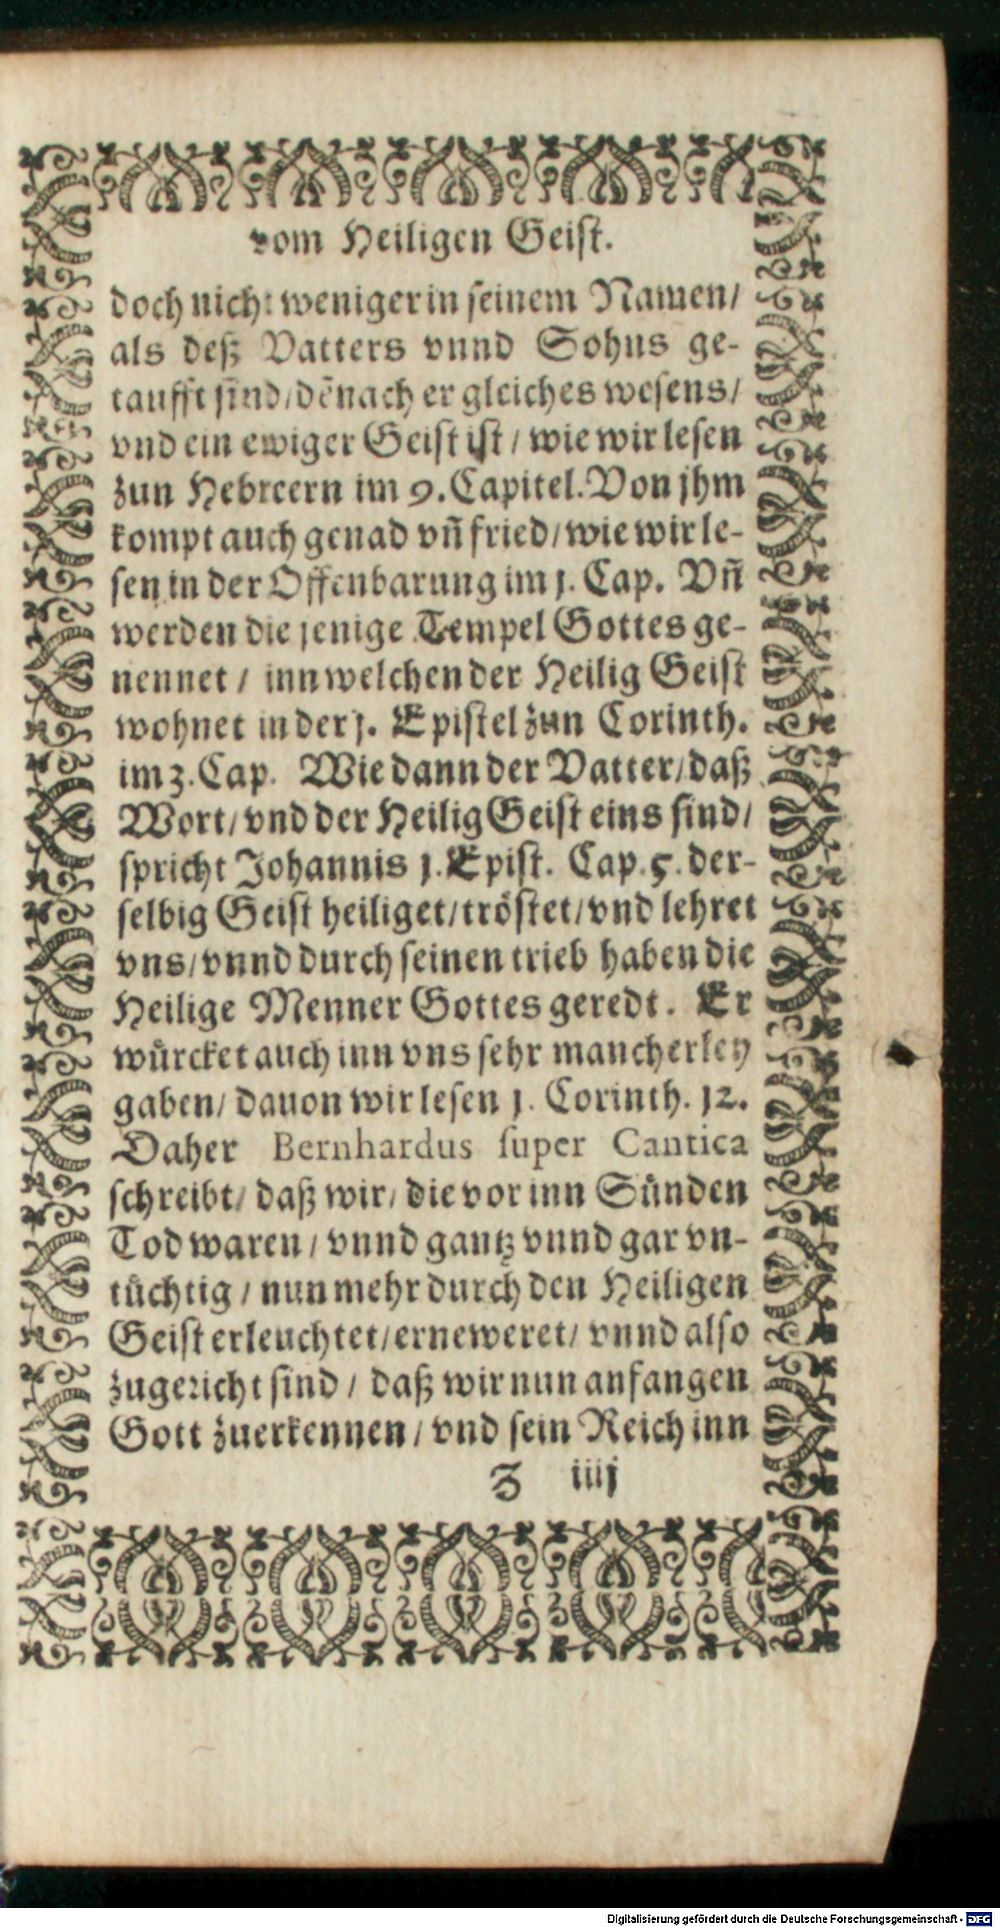 vom Heiligen Geist.
doch nicht weniger in seinem Namen/
als deß Vatters vnnd Sohns ge-
taufft sind/dẽnach er gleiches wesens/
vnd ein ewiger Geist ist / wie wir lesen
zun Hebreern im 9. Capitel. Von jhm
kompt auch genad vñ fried/wie wir le-
sen in der Offenbarung im 1. Cap. Vñ
werden die jenige Tempel Gottes ge-
nennet / inn welchen der Heilig Geist
wohnet in der 1. Epistel zun Corinth.
im 3. Cap. Wie dann der Vatter/daß
Wort/ vnd der Heilig Geist eins sind/
spricht Johannis 1. Epist. Cap. 5. der-
selbig Geist heiliget/tröstet/vnd lehret
vns/vnnd durch seinen trieb haben die
Heilige Menner Gottes geredt. Er
würcket auch inn vns sehr mancherley
gaben/ dauon wir lesen 1. Corinth. 12.
Daher Bernhardus super Cantica
schreibt/ daß wir/ die vor inn Sünden
Tod waren / vnnd gantz vnnd gar vn-
tüchtig / nun mehr durch den Heiligen
Geist erleuchtet/erneweret/ vnnd also
zugericht sind / daß wir nun anfangen
Gott zuerkennen / vnd sein Reich inn
Z iiij
Digitalisierung gefördert durch die Deutsche Forschungsgemeinschaft - DFG